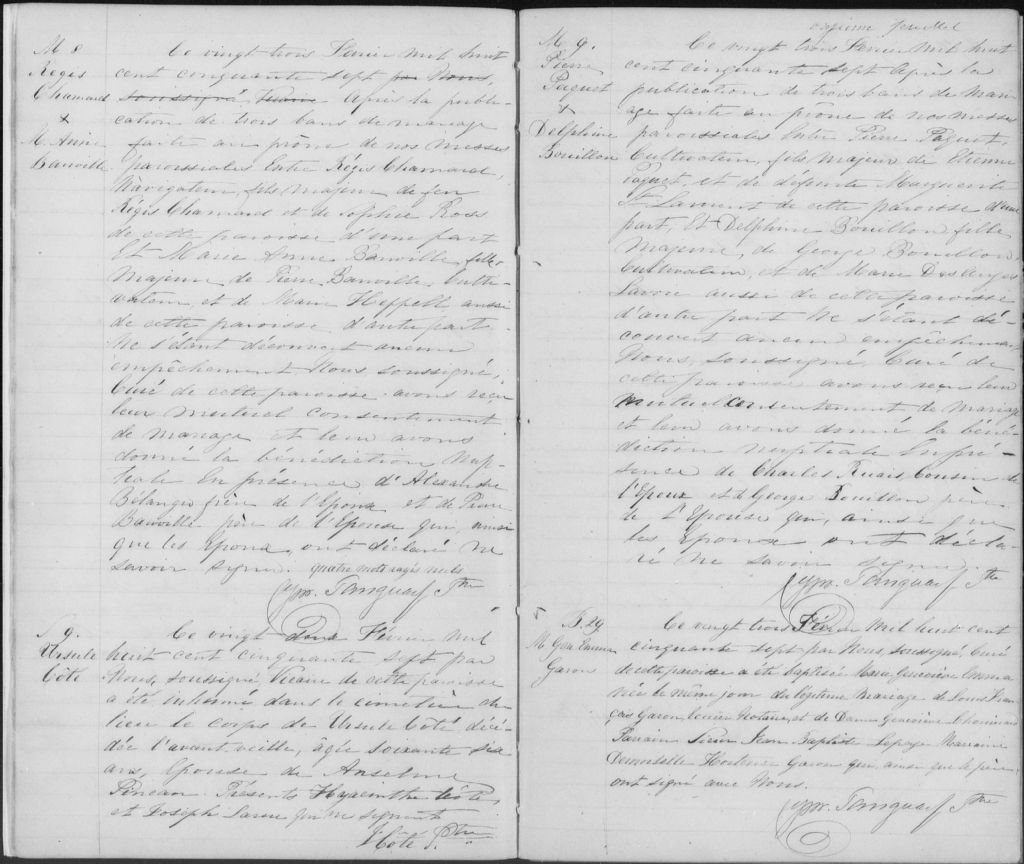 M 8
Régis
Chamard
x
M. Anne
Banville
Ce vingt trois Février mil huit
cent cinquante sept par Nous,
soussigné Vicaire Après la publi-
cation de trois bans de mariage
faite au prône de nos messes
paroissiales Entre Régis Chamard,
Navigateur, fils majeur de feu
Régis Chamard et de Sophie Ross
de cette paroisse d'une part
Et Marie Anne Banville, fille
Majeure de Pierre Banville, Culti-
vateur, et de Marie Heppell aussi
de cette paroisse d'autre part.
Ne s'étant découvert aucun
empêchement Nous soussigné,
Curé de cette paroisse avons reçu
leur mutuel consentement
de mariage et leur avons
donné la bénédiction Nup-
tiale En présence d'Alexandre
Bélanger frère de l'Epoux et de Pierre
Banville père de l'Epouse qui, ainsi
que les Epoux, ont déclaré ne
savoir signer. quatre mots rayés nuls
Cypr. Tanguay Ptre
S 9.
Ursule
Côté
Ce vingt deux Février mil
huit cent cinquante sept par
Nous, soussigné, Vicaire de cette paroisse
a été inhumé dans le cimetière du
lieu le corps de Ursule Côté décé-
dée l'avant veille, âgée soixante six
ans, Epouse de Anselme
Pineau. Présents Hyacinthe Côté,
et Joseph qui ne signent
Côté Ptre
onzième feuillet
M. 9.
Pierre
Paquet
x
Delphine
Bouillon
Ce vingt trois Février mil huit
cent cinquante sept Après la
publication de trois bans de mari-
age faite au prône de nos messes
paroissiales Entre Pierre Paquet,
Cultivateur, fils majeur de Etienne
Paquet, et de défunte Marguerite
St Laurent de cette paroisse d'une
part, Et Delphine Bouillon fille
majeure, de George Bouillon
Cultivateur, et de Marie Desanges
Lavoie aussi de cette paroisse
d'autre part Ne s'étant dé-
couvert aucun empêchement
Nous, soussigné, Curé de
cette paroisse avons reçu leur
mutuel consentement de mariage
et leur avons donné la béné-
diction nuptiale En pré-
sence de Charles Ruais Cousin de
l'Epoux et de George Bouillon père
de l'Epouse qui, ainsi que
les Epoux ont décla-
ré ne savoir signer.
Cypr. Tanguay Ptre
B. 29
M. Gen. Emma
Garon
Ce vingt trois Février mil huit cent
cinquante sept par Nous, soussigné, Curé
de cette paroisse a été baptisée Marie Geneviève Emma
née le même jour du légitime mariage de Louis Fran
çois Garon, Ecuier Notaire, et de Dame Geneviève Chouinard
Parrain Sieur Jean Baptiste Lepage Marraine
Demoiselle Garon qui, ainsi que le père
ont signé avec Nous.
Cypr. Tanguay Ptre